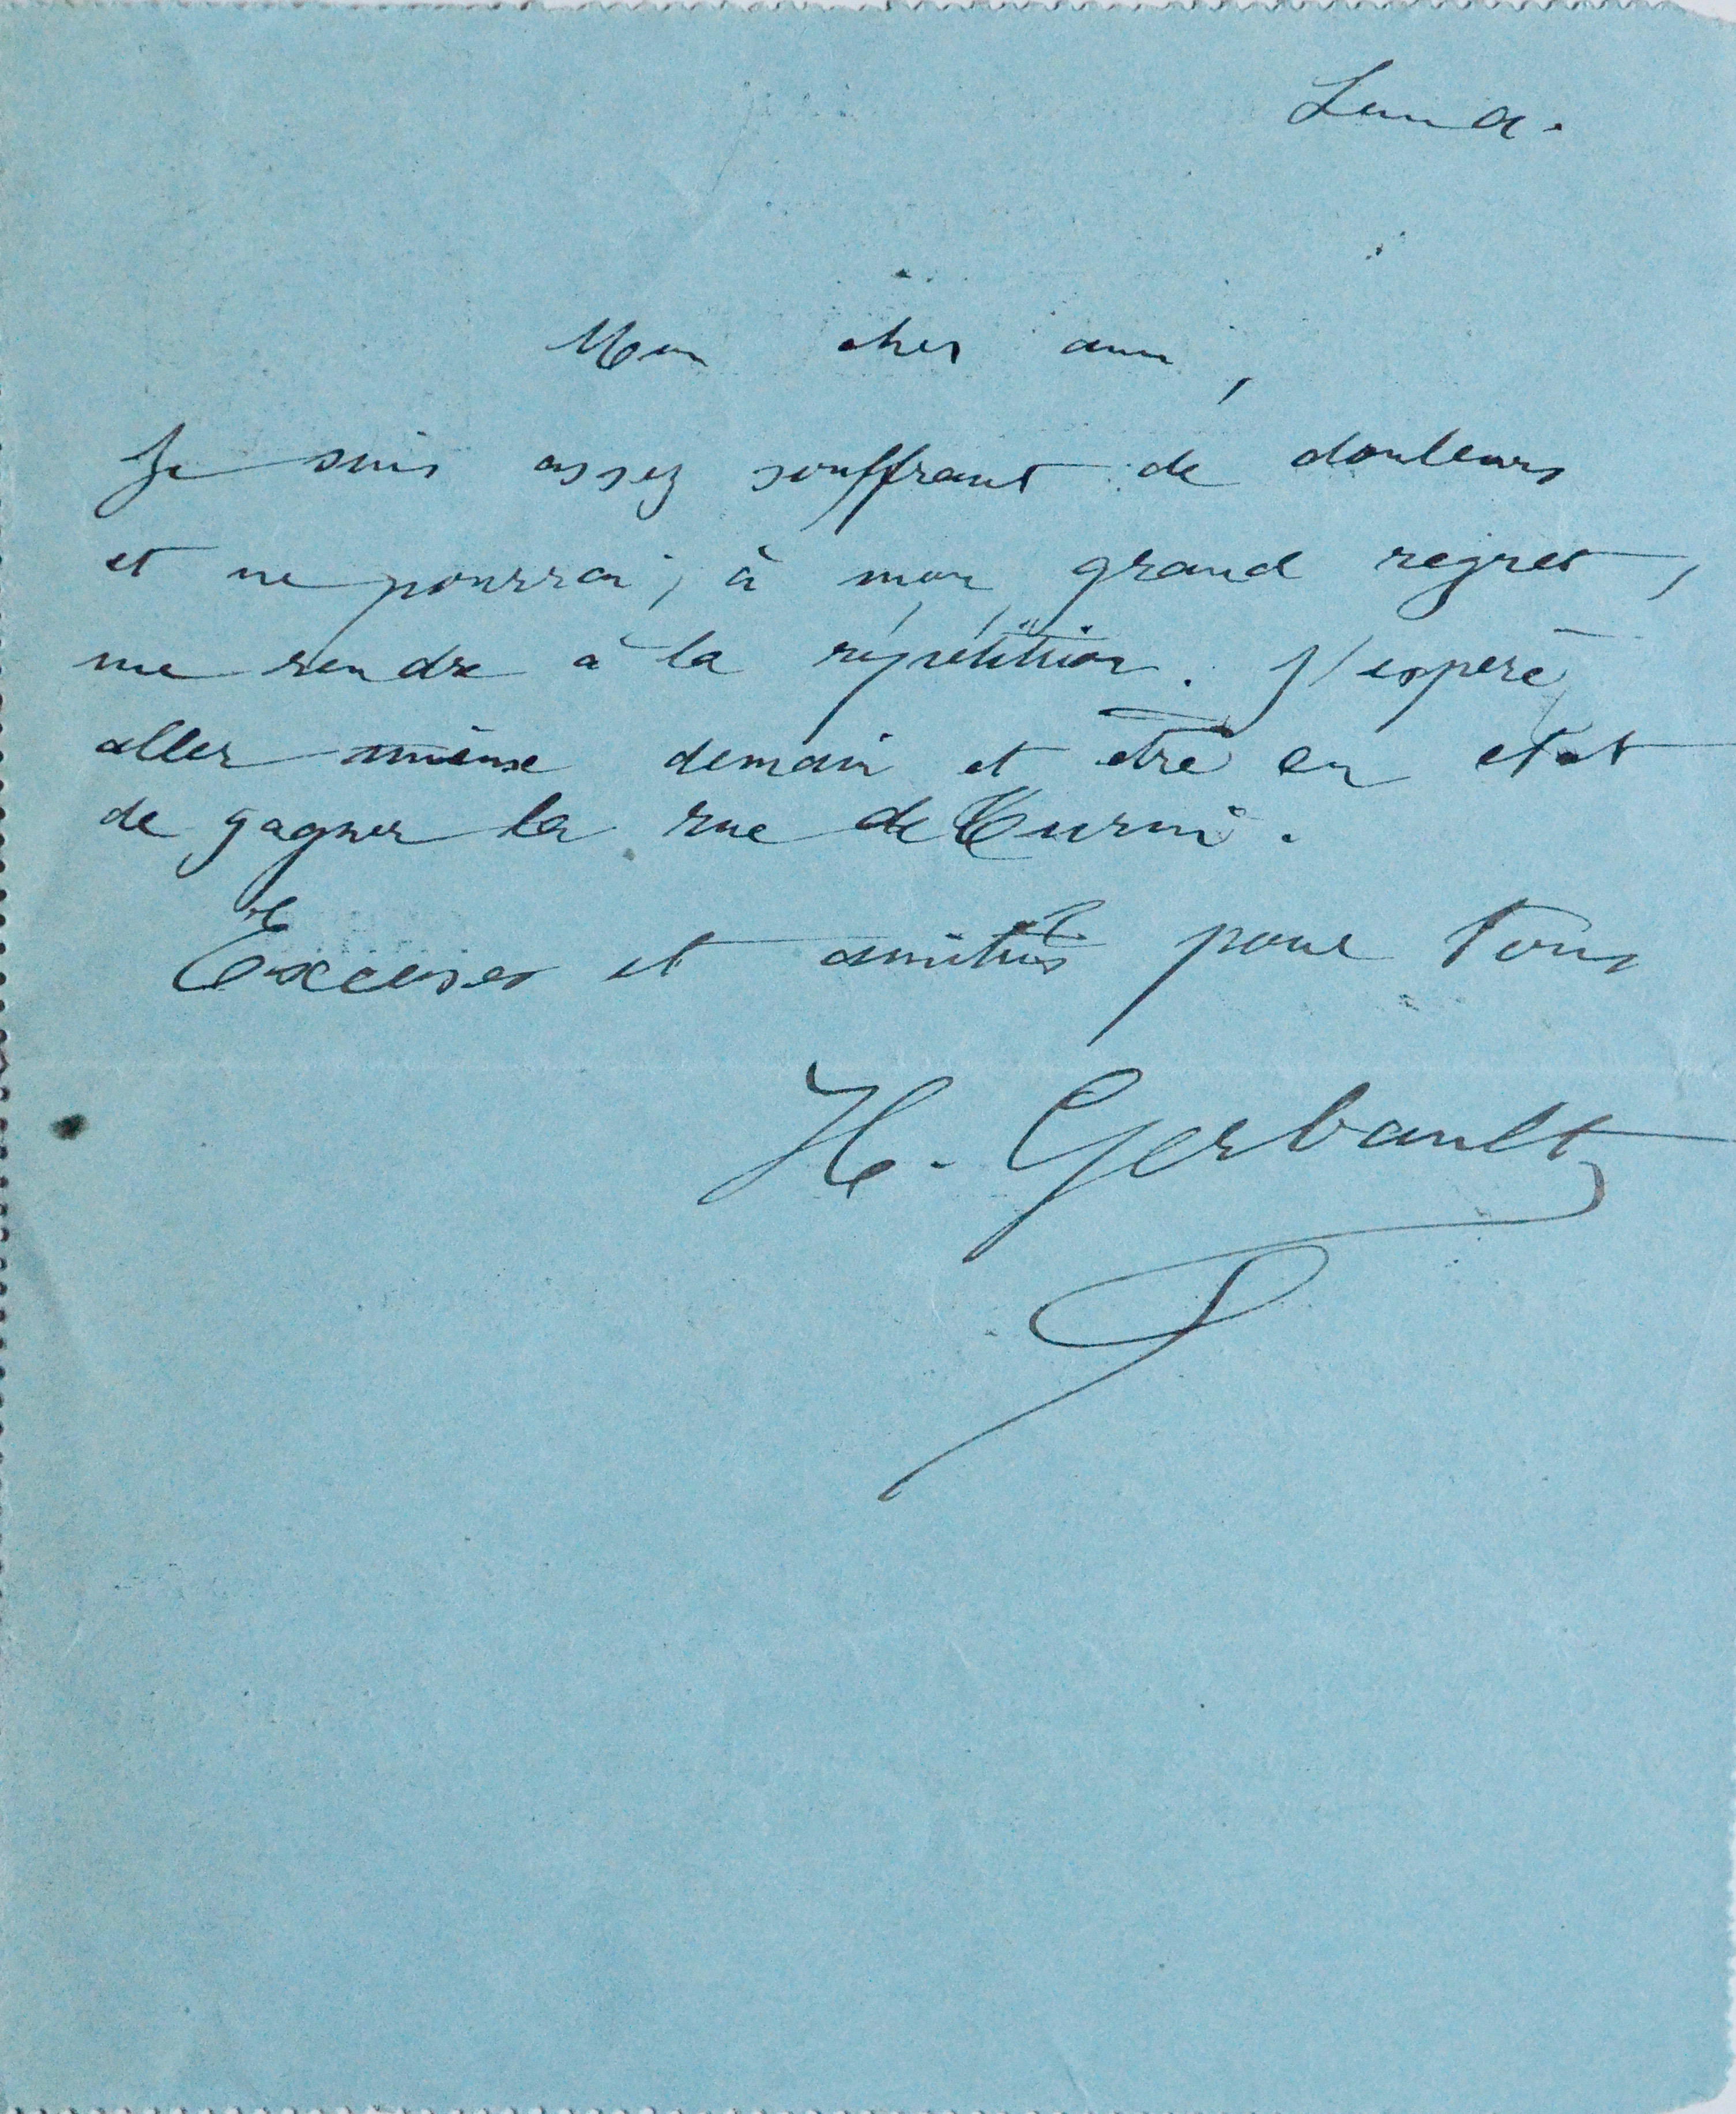 Lundi.
Mon cher ami,
Je suis assez souffrant de douleurs
et ne pourrai, à mon grand regret,
me rendre à la répétition. J'espère
aller mieux demain et être en état
de gagner la rue de Turin.
Excuses et amitiés pour tous
H. Gerbault